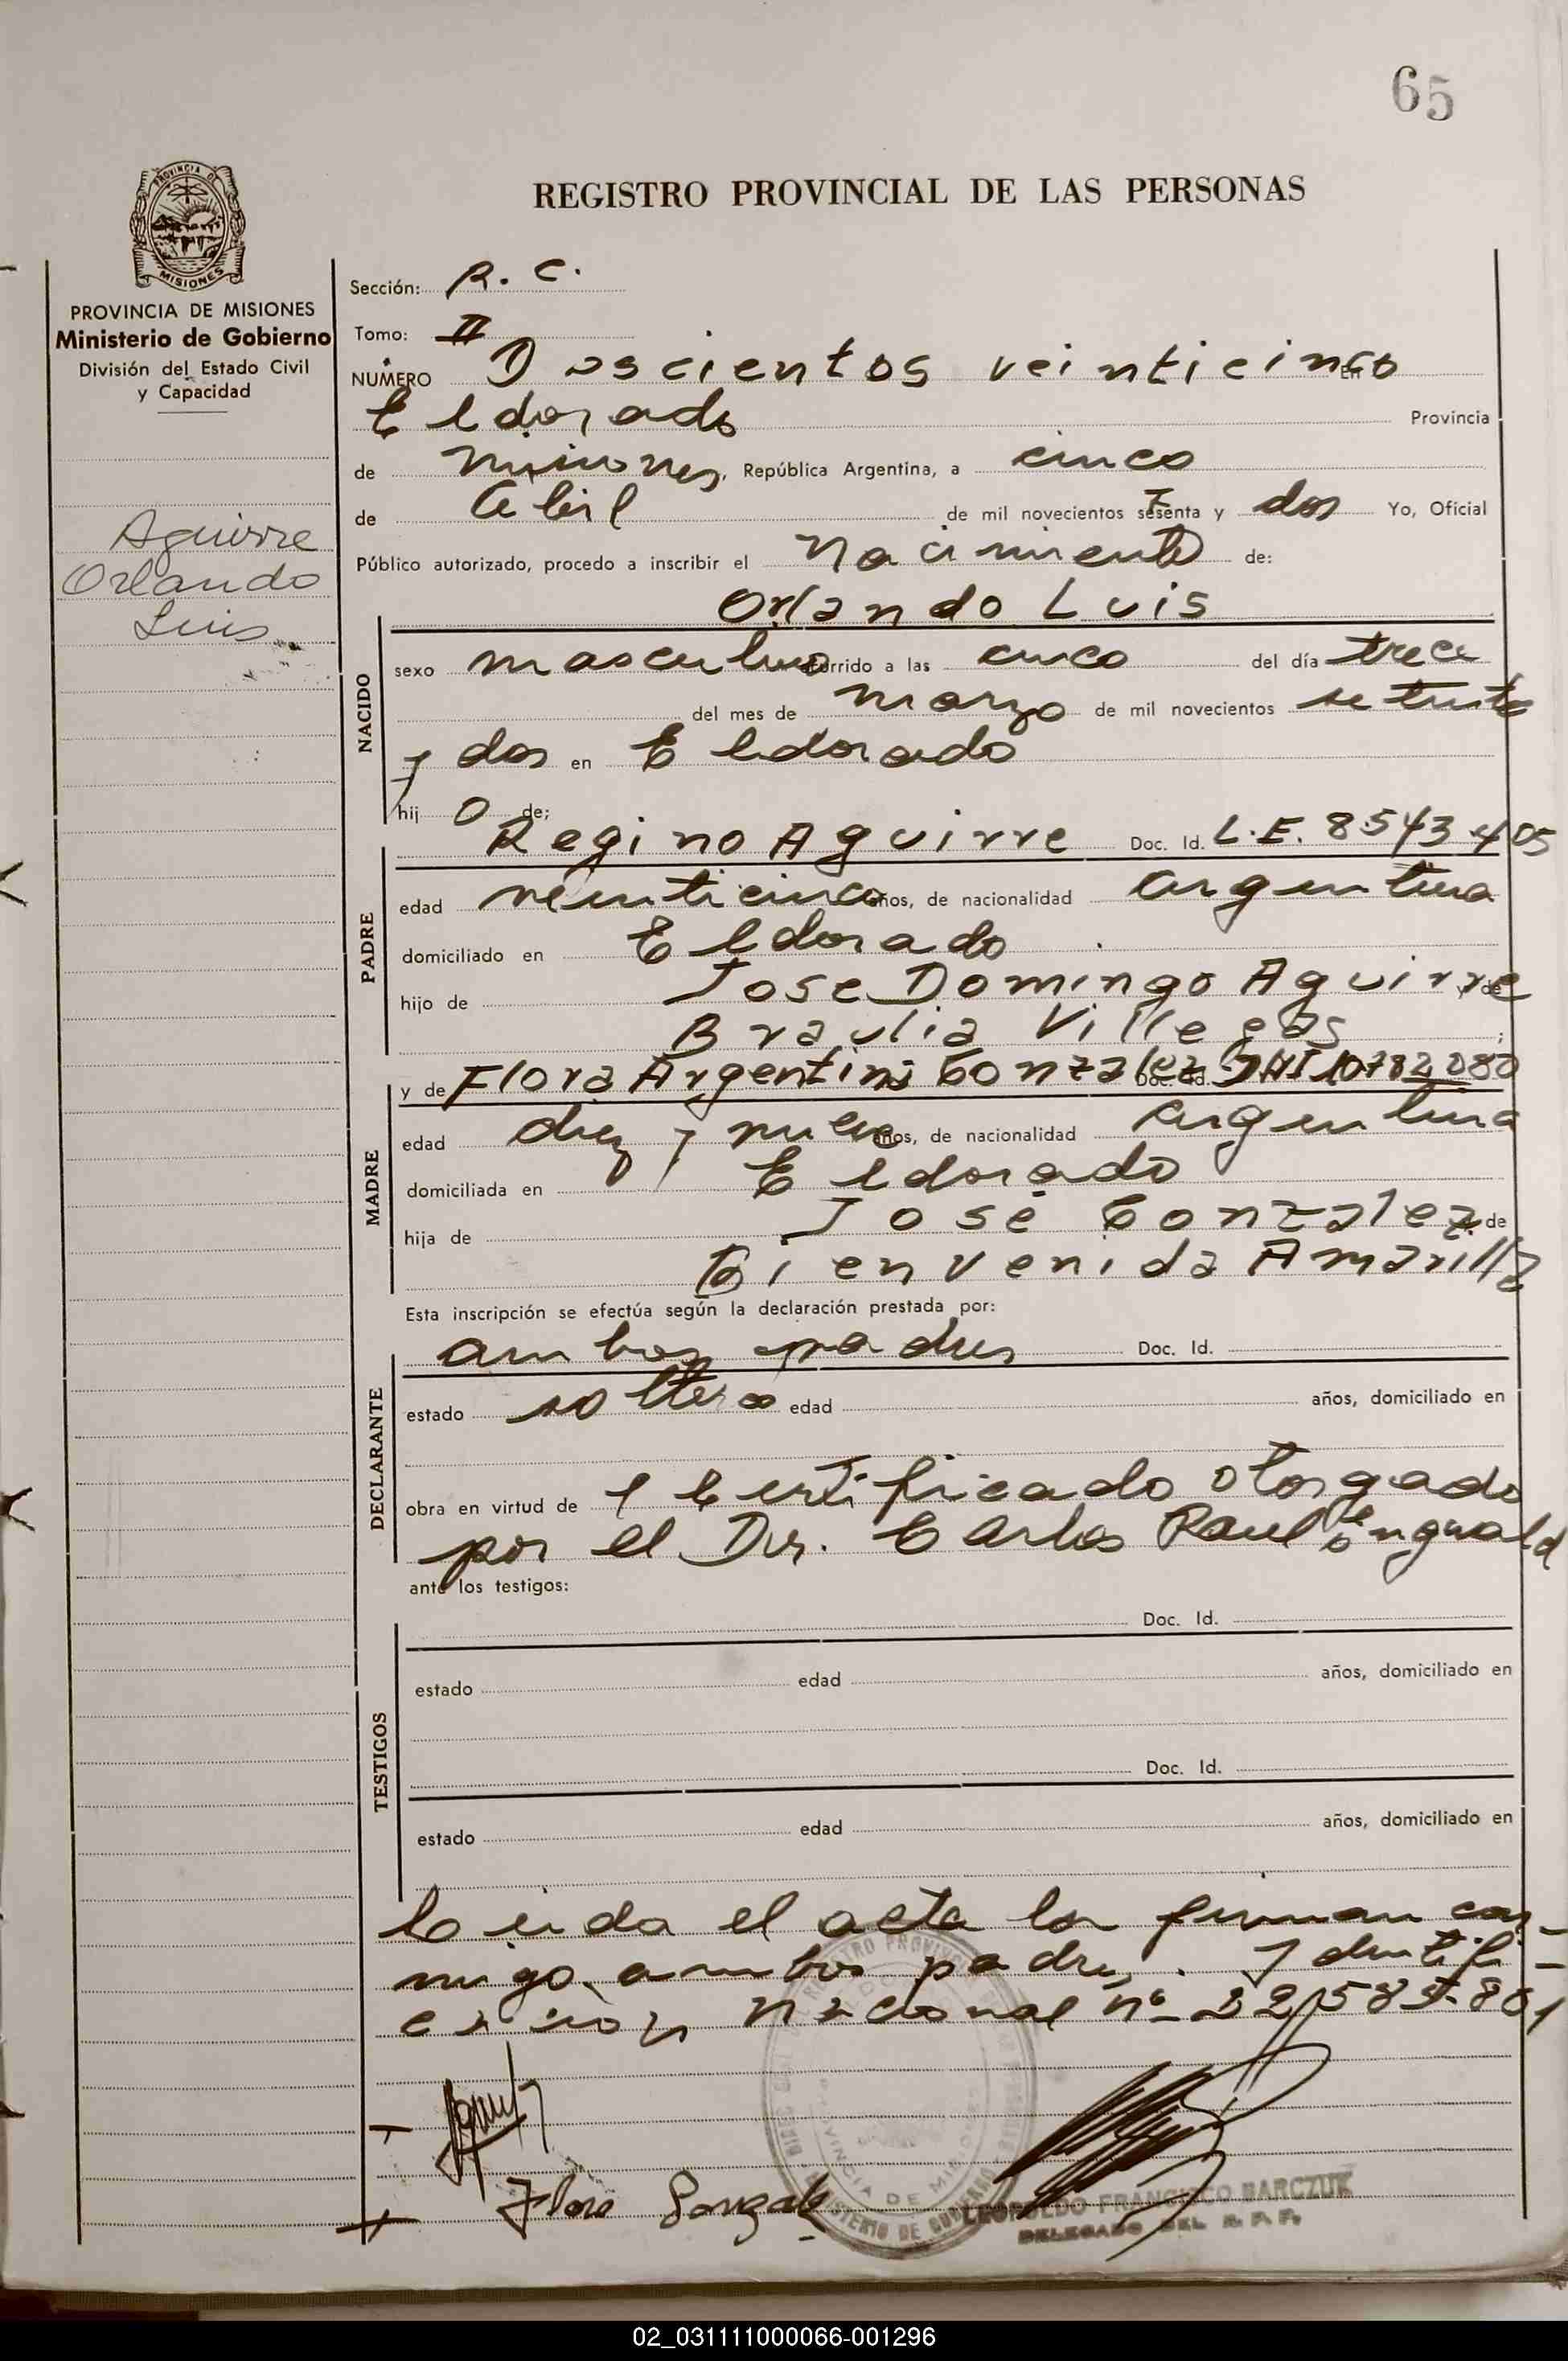 65
REGISTRO PROVINCIAL DE LAS PERSONAS
PROVINCIA DE MISIONES
PROVINCIA DE MISIONES
Ministerio de Gobierno
División del Estado Civil
y Capacidad
Aguirre
Orlando
Luis
Sección: R. C.
Tomo: II
NÚMERO Doscientos veinticinco En
Eldorado Provincia
de Misiones, República Argentina, a cinco
de Abril de mil novecientos setenta y dos Yo, Oficial
Público autorizado, procedo a inscribir el nacimiento de:
Orlando Luis
NACIDO
sexo masculino ocurrido a las cinco del día trece
del mes de marzo de mil novecientos setenta
y dos en Eldorado
hij o de;
Regino Aguirre Doc. Id. L.E. 8543405
PADRE
edad veinticinco años, de nacionalidad argentina
domiciliado en Eldorado
hijo de Jose Domingo Aguirre y de
Braulia Villegas ;
y de Flora Argentina Gonzalez Doc. Id. 10782080
MADRE
edad diez y nueve años, de nacionalidad argentina
domiciliada en Eldorado
hija de José Gonzalez y de
Bienvenida Amarilla
Esta inscripción se efectúa según la declaración prestada por:
ambos padres Doc. Id.
DECLARANTE
estado solteros edad años, domiciliado en
obra en virtud de Certificado otorgado
por el Dr. Carlos Raul
ante los testigos:
Doc. Id.
TESTIGOS
estado edad años, domiciliado en
Doc. Id.
estado edad años, domiciliado en
Leida el acta la firman con-
migo ambos padres. Identifi-
cación nacional nº
Flora Gonzalez
LEOPOLDO FRANCISCO BARCZUK
DELEGADO DEL R. P. P.
02_031111000066-001296